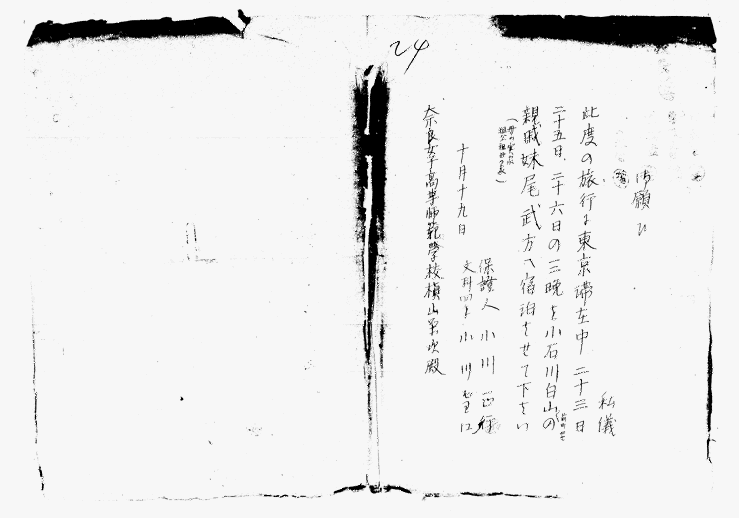 24
御願ひ
私儀
此度の旅行に東京滞在中二十三日
二十五日、二十六日の三晩を小石川白山の
親戚妹尾武方へ宿泊させて下さい
十月十九日
保證人 小川正
文科四年 小川
奈良女子高等師範學校槇山栄次殿